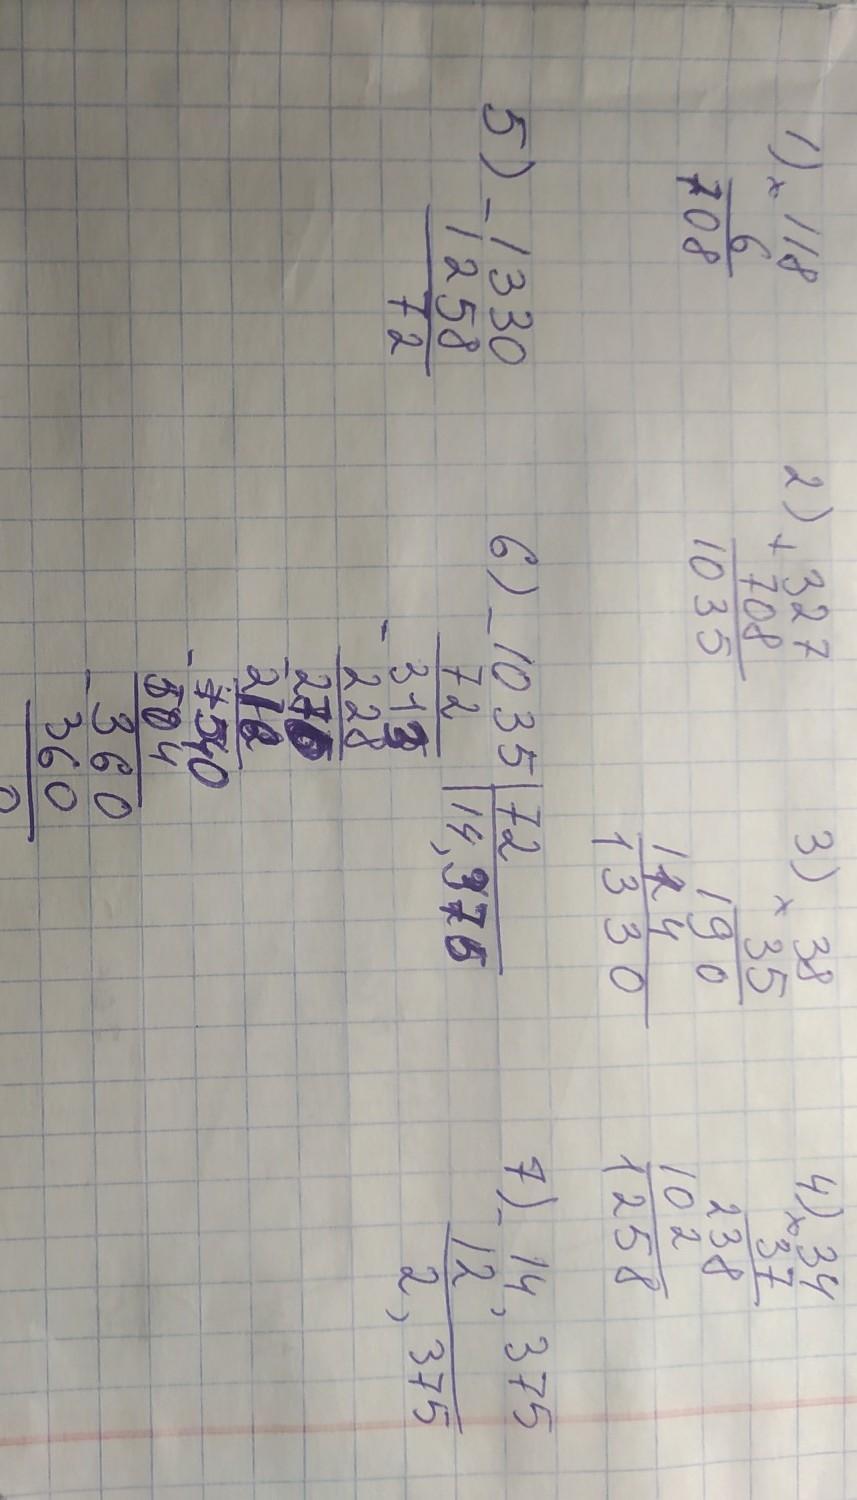 1) × 118
6
708
2) + 327
708
1035
3) × 38
35
190
114
1330
4) × 34
37
238
102
1258
5) - 1330
1258
72
6) - 1035 | 72
72 | 14,375
- 315
228
- 270
216
- 540
504
- 360
360
0
7) - 14,375
12
2,375